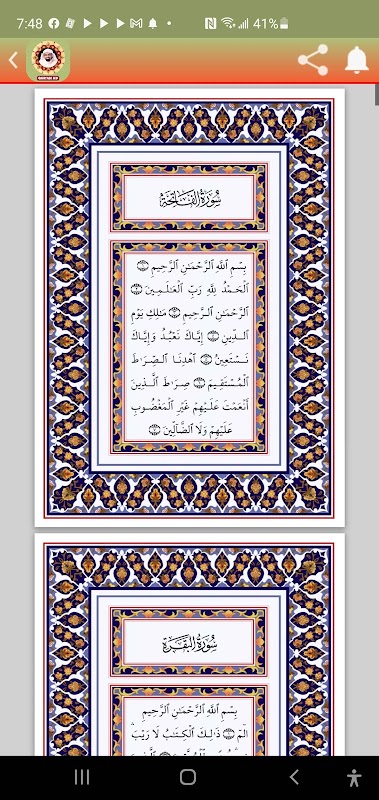 7:48
41%
سُورَةُ الْفَاتِحَةِ
بِسْمِ ٱللَّهِ ٱلرَّحْمَٰنِ ٱلرَّحِيمِ
ٱلْحَمْدُ لِلَّهِ رَبِّ ٱلْعَٰلَمِينَ
ٱلرَّحْمَٰنِ ٱلرَّحِيمِ مَٰلِكِ يَوْمِ
ٱلدِّينِ إِيَّاكَ نَعْبُدُ وَإِيَّاكَ
نَسْتَعِينُ ٱهْدِنَا ٱلصِّرَٰطَ
ٱلْمُسْتَقِيمَ صِرَٰطَ ٱلَّذِينَ
أَنْعَمْتَ عَلَيْهِمْ غَيْرِ ٱلْمَغْضُوبِ
عَلَيْهِمْ وَلَا ٱلضَّآلِّينَ
سُورَةُ الْبَقَرَةِ
بِسْمِ ٱللَّهِ ٱلرَّحْمَٰنِ ٱلرَّحِيمِ
الٓمٓ ذَٰلِكَ ٱلْكِتَٰبُ لَا رَيْبَ